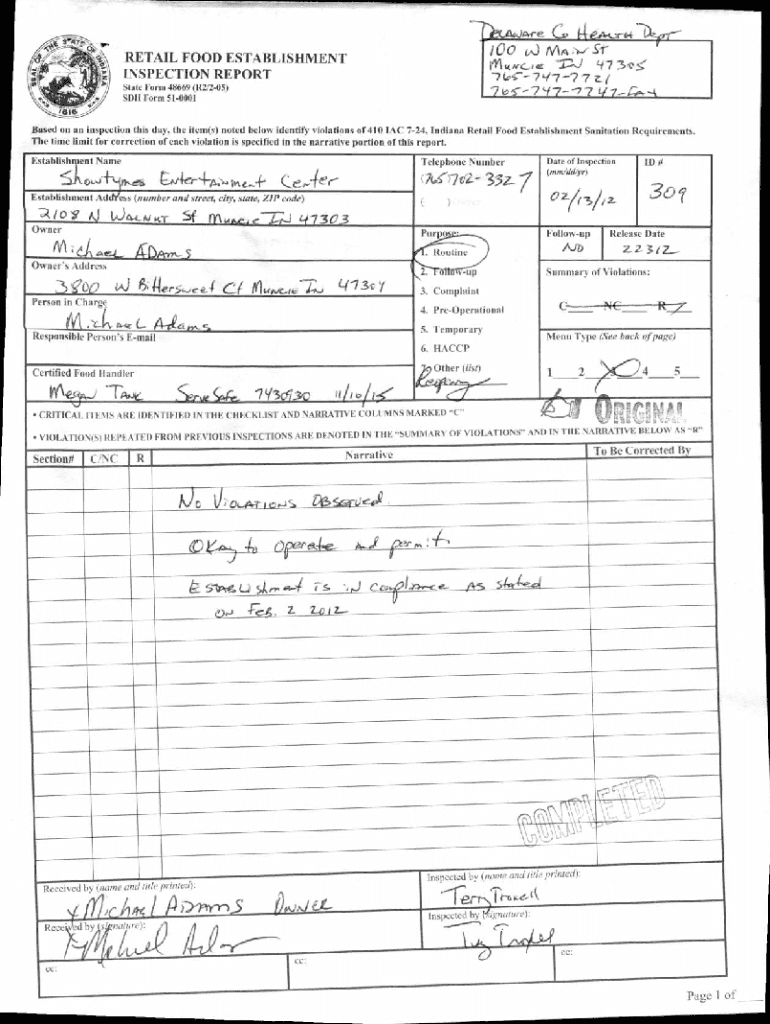 DELAWARE Co HEALTH Dept
100 W MAIN ST
MUNCIE IN 47305
765-747-7721
765-747-7747-FAX
SEAL OF THE STATE OF INDIANA
1816
RETAIL FOOD ESTABLISHMENT
INSPECTION REPORT
State Form 48669 (R2/2-05)
SDH Form 51-0001
Based on an inspection this day, the item(s) noted below identify violations of 410 IAC 7-24, Indiana Retail Food Establishment Sanitation Requirements.
The time limit for correction of each violation is specified in the narrative portion of this report.
Establishment Name
Showtymes Entertainment Center
Telephone Number
(765)702-3327
( )
Date of Inspection
(mm/dd/yr)
02/13/12
ID #
309
Establishment Address (number and street, city, state, ZIP code)
2108 N WALNUT St MUNCIE IN 47303
Owner
Michael ADAMS
Purpose:
1. Routine
2. Follow-up
3. Complaint
4. Pre-Operational
5. Temporary
6. HACCP
7. Other (list)
Follow-up
NO
Release Date
22312
Owner's Address
3800 W Bittersweet Ct MUNCIE IN 47304
Summary of Violations:
C NC R
Person in Charge
Michael Adams
Responsible Person's E-mail
Menu Type (See back of page)
1 2 4 5
Certified Food Handler
Megan Tank ServSafe 7430930 11/10/15
• CRITICAL ITEMS ARE IDENTIFIED IN THE CHECKLIST AND NARRATIVE COLUMNS MARKED "C"
ORIGINAL
• VIOLATION(S) REPEATED FROM PREVIOUS INSPECTIONS ARE DENOTED IN THE "SUMMARY OF VIOLATIONS" AND IN THE NARRATIVE BELOW AS "R"
Section# C/NC R Narrative To Be Corrected By
No VIOLATIONS OBSERVED.
OKay to operate and permit.
ESTABLIShment is in compliance AS stated
ON FEB. 2 2012
COMPLETED
Received by (name and title printed):
x Michael ADAMS OWNER
Inspected by (name and title printed):
Terry Troxell
Received by (signature):
Inspected by (signature):
cc:
cc:
cc:
Page 1 of